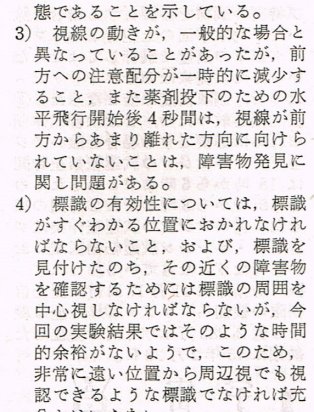 態であることを示している。
3) 視線の動きが，一般的な場合と
異なっていることがあったが，前
方への注意配分が一時的に減少す
ること，また薬剤投下のための水
平飛行開始後4秒間は，視線が前
方からあまり離れた方向に向けら
れていないことは，障害物発見に
関し問題がある。
4) 標識の有効性については，標識
がすぐわかる位置におかれなけれ
ばならないこと，および，標識を
見付けたのち，その近くの障害物
を確認するためには標識の周囲を
中心視しなければならないが，今
回の実験結果ではそのような時間
的余裕がないようで，このため，
非常に遠い位置から周辺視でも視
認できるような標識でなければ充